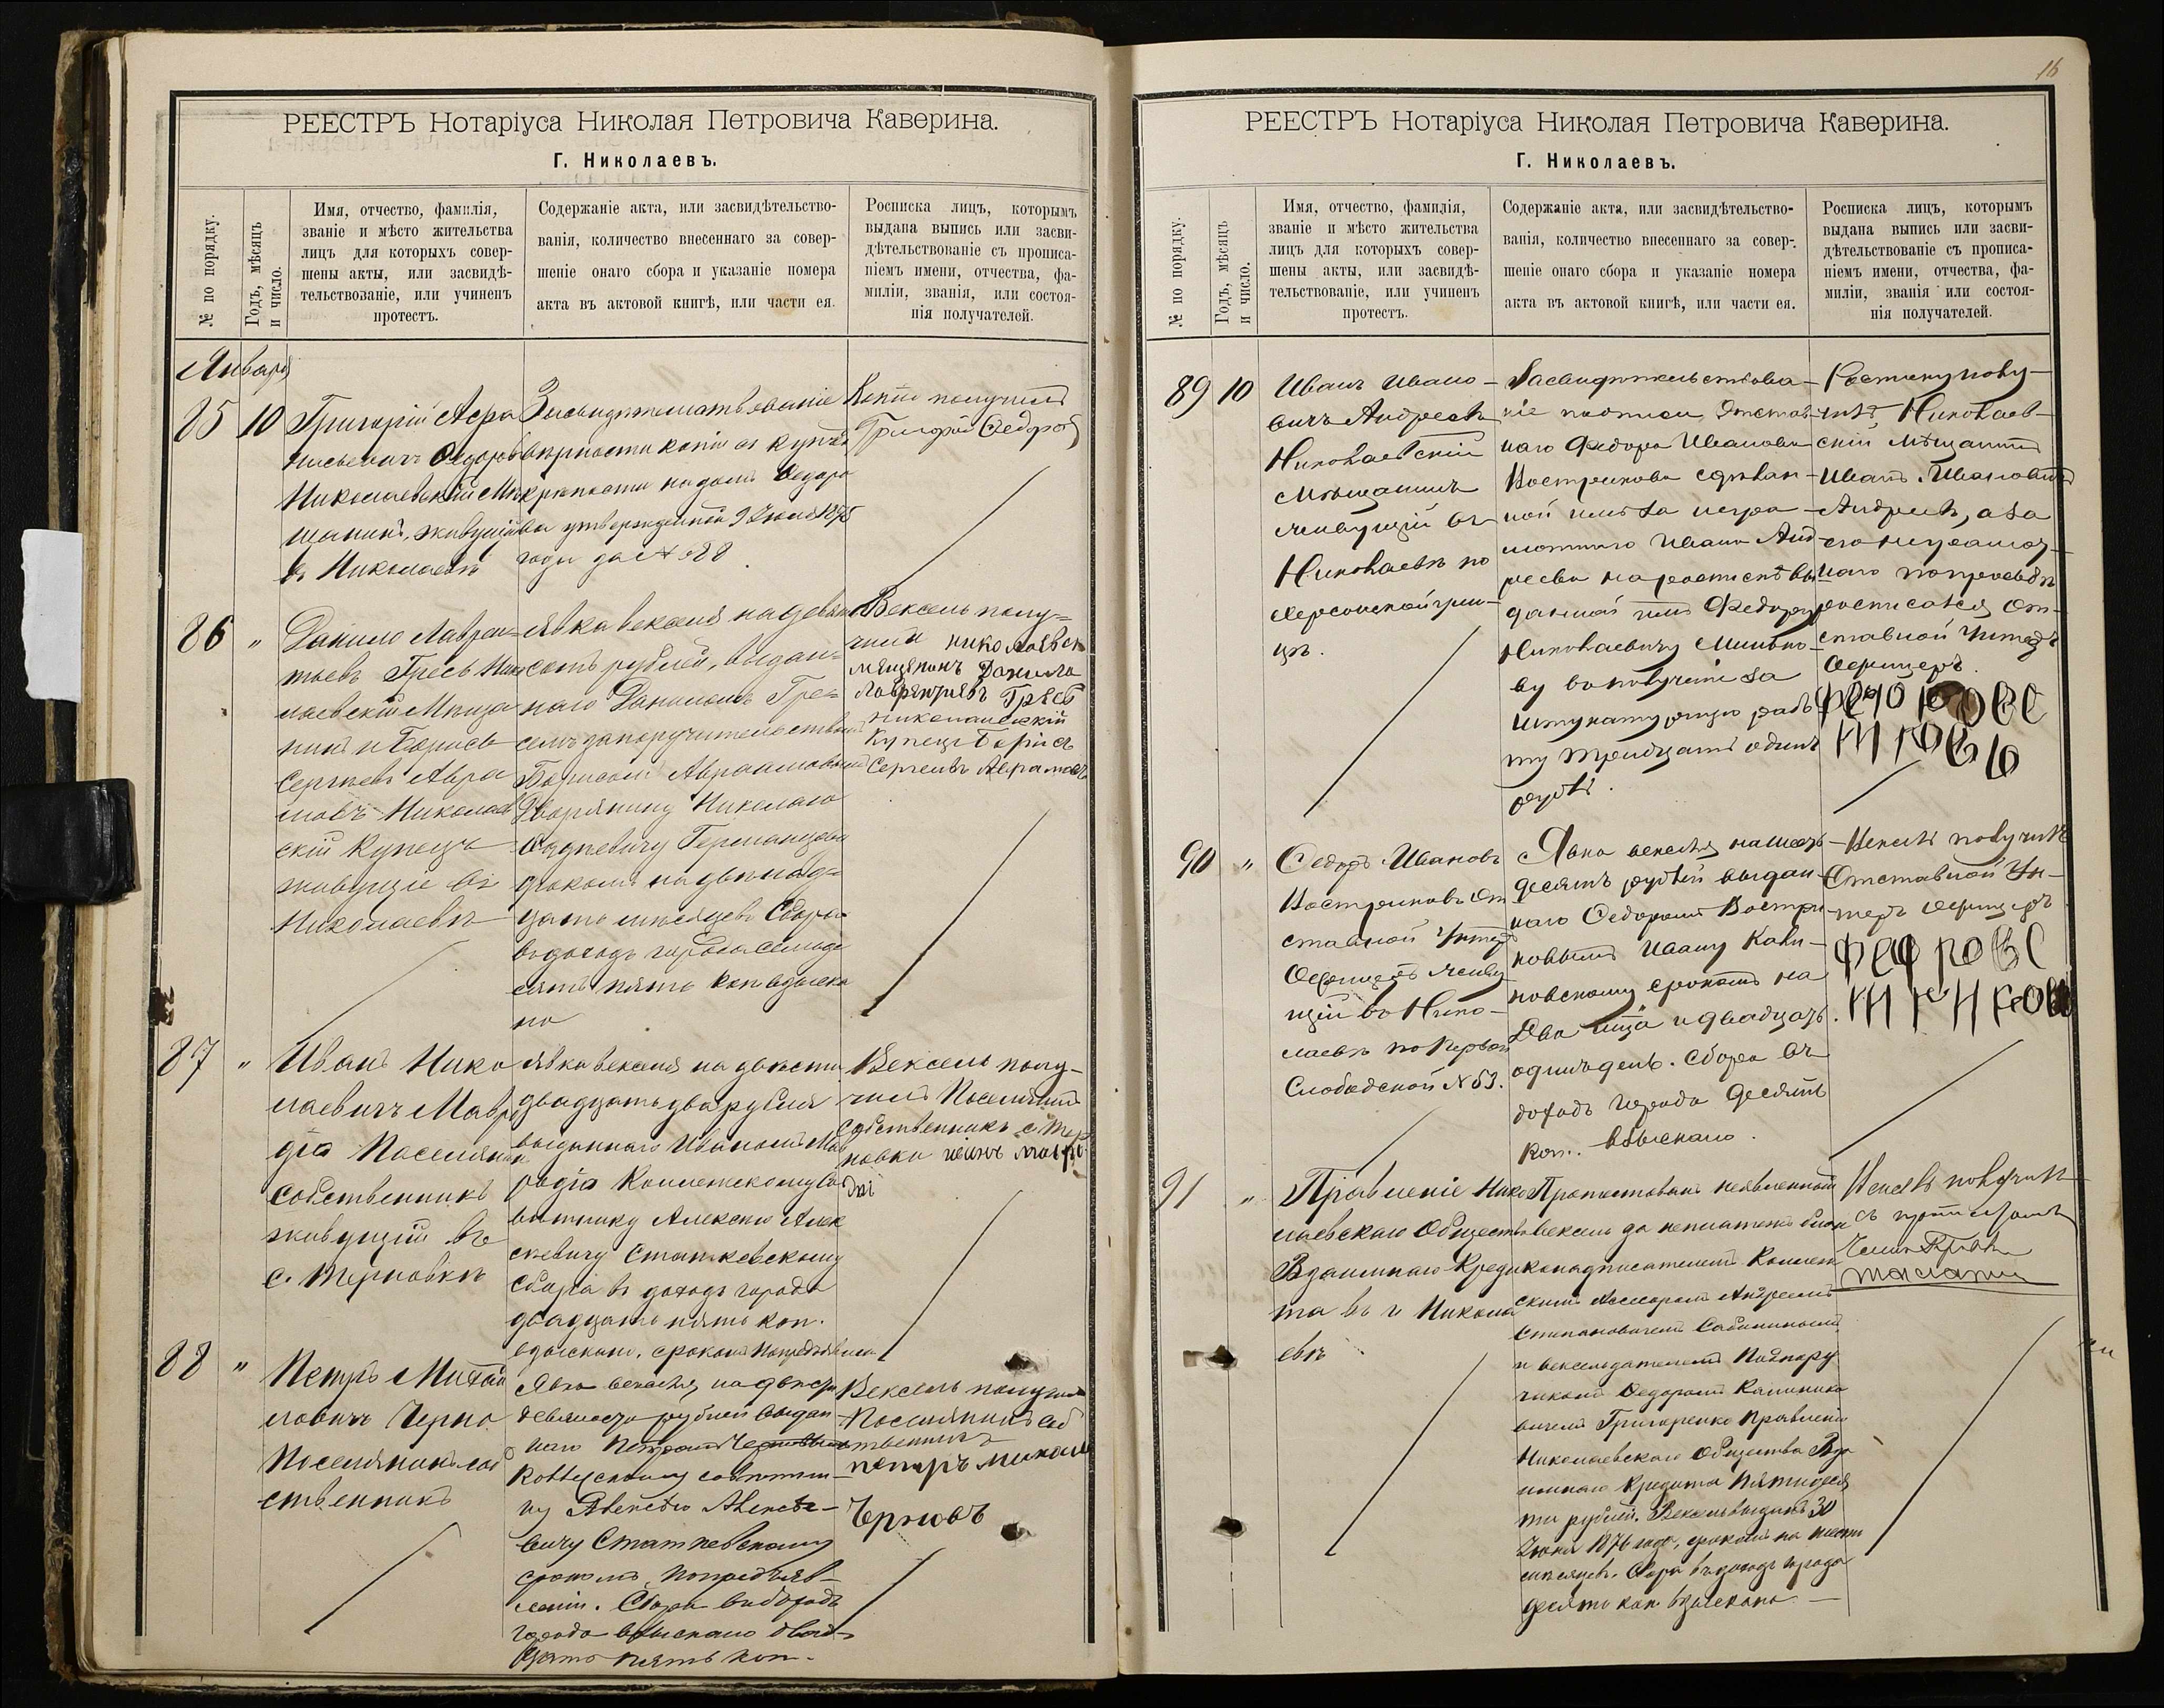 РЕЕСТРЪ Нотаріуса Николая Петровича Каверина.
Г. Николаевъ.
№ по порядку.
Годъ, мѣсяцъ
и число.
Имя, отчество, фамилія,
званіе и мѣсто жительства
лицъ для которыхъ совер-
шены акты, или засвидѣ-
тельствованіе, или учиненъ
протестъ.
Содержаніе акта, или засвидѣтельство-
ванія, количество внесеннаго за совер-
шеніе онаго сбора и указаніе номера
акта въ актовой книгѣ, или части ея.
Росписка лицъ, которымъ
выдана выпись или засви-
дѣтельствованіе съ прописа-
ніемъ имени, отчества, фа-
миліи, званія, или состоя-
нія получателей.
Января
85 10
Григорій
Николаевскій Мѣ
щанинъ, живущій
въ Николаевѣ
Засвидѣтельствованіе
вѣрности копіи съ купчей
крѣпости на домъ Федоро
ва утвержденной 9 Іюля 1875
года за № 88.
Копію получилъ
Григорій Федоровъ
86 "
Данило Лаврен-
тьевъ Гресь Нико
лаевскій Мѣща
нинъ и Борисъ
Сергѣевъ Авра
мовъ Николаев
скій Купецъ
живущіе въ
Николаевѣ
Явка векселя на девять
сотъ рублей, выдан-
наго Даниломъ Гре-
семъ за поручительствомъ
Борисомъ Авраамовымъ
Дворянину Николаю
срокомъ на двѣнад-
цать мѣсяцевъ Сбора
въ доходъ города семьде
сятъ пять коп взыска
но
Вексель полу-
чили николаевск
мещанинъ Данила
Лаврентиевъ Гресь
Николаевскій
Купецъ Борисъ
Сергеевъ Аврамовъ
87 "
Иванъ Нико
лаевичъ Мавро
дій Поселянинъ
Собственникъ
живущій въ
с. Терновкѣ
Явка векселя на двѣсти
двадцать два рубля
выданнаго Иваномъ Мав
родій Коллежскому Со
вѣтнику Алексѣю Алек
сѣевичу Статкевскому
Сбора въ доходъ города
двадцать пять коп.
взыскано. срокомъ по предъявлен.
Вексель полу-
чилъ Поселянинъ
Собственникъ с. Тер
новки иванъ мавро
дзі
88 "
Петръ Михай
ловичъ Черно
Поселянинъ соб
ственникъ
Явка векселя на двѣсти
девяносто рублей выдан
наго Петромъ Черновымъ
Коллежскому совѣтни-
ку Алексѣю Алексѣе-
вичу Статкевскому
срокомъ по предъяв-
леніи. Сбора въ доходъ
города взыскано двад-
цать пять коп.
Вексель получилъ
Поселянинъ соб
ственникъ
петръ михаил
Черновъ
16
РЕЕСТРЪ Нотаріуса Николая Петровича Каверина.
Г. Николаевъ.
№ по порядку.
Годъ, мѣсяцъ
и число.
Имя, отчество, фамилія,
званіе и мѣсто жительства
лицъ для которыхъ совер-
шены акты, или засвидѣ-
тельствованіе, или учиненъ
протестъ.
Содержаніе акта, или засвидѣтельство-
ванія, количество внесеннаго за совер-
шеніе онаго сбора и указаніе номера
акта въ актовой книгѣ, или части ея.
Росписка лицъ, которымъ
выдана выпись или засви-
дѣтельствованіе съ прописа-
ніемъ имени, отчества, фа-
миліи, званія или состоя-
нія получателей.
89 10
Иванъ Ивано-
вичъ Андреевъ
Николаевскій
Мѣщанинъ
живущій въ
Николаевѣ по
Херсонской ули-
цѣ.
Засвидѣтельствова-
ніе подписи Отстав-
наго Федора Иванова
Вострикова сдѣлан-
ной имъ за негра-
мотнаго Ивана Анд-
реева на роспискѣ вы
данной имъ Федору
Николаевичу
ву въ полученіи за
штукатурную рабо
ту тридцати одного
рубля.
Росписку полу-
чилъ Николаев-
скій Мѣщанинъ
Иванъ Ивановичъ
Андреевъ, а за
его неграмот-
наго по просьбѣ
росписался От-
ставной Унтеръ
Офицеръ
90 "
Федоръ Ивановъ
Востриковъ От
ставной Унтеръ
Офицеръ живу
щій въ Нико-
лаевѣ по Первой
Слободской № 53.
Явка векселя на шесть
десятъ рублей выдан
наго Федоромъ Востри
ковымъ Ивану Кали-
новскому срокомъ на
Два мѣсяца и двадцать
одинъ день. Сбора въ
доходъ города десять
коп. взыскано.
Вексель получилъ
Отставной Ун-
теръ офицеръ
91 "
Правленіе Нико
лаевскаго Общества
Взаимнаго Креди
та въ г Никола
евѣ
Протестованъ неявленный
вексель за неплатежъ
надписателемъ Коллеж
скимъ Ассесоромъ Андреемъ
Степановичемъ Сабининымъ
и векселедателемъ Подпору
чикомъ Федоромъ
вичемъ Григоренко Правленію
Николаевскаго Общества Вза
имнаго Кредита пятидеся
ти рублей. Вексель выданъ 30
Іюня 1876 года, срокомъ на шесть
мѣсяцевъ. Сбора въ доходъ города
десять коп. взыскано
Вексель получилъ
съ протестомъ